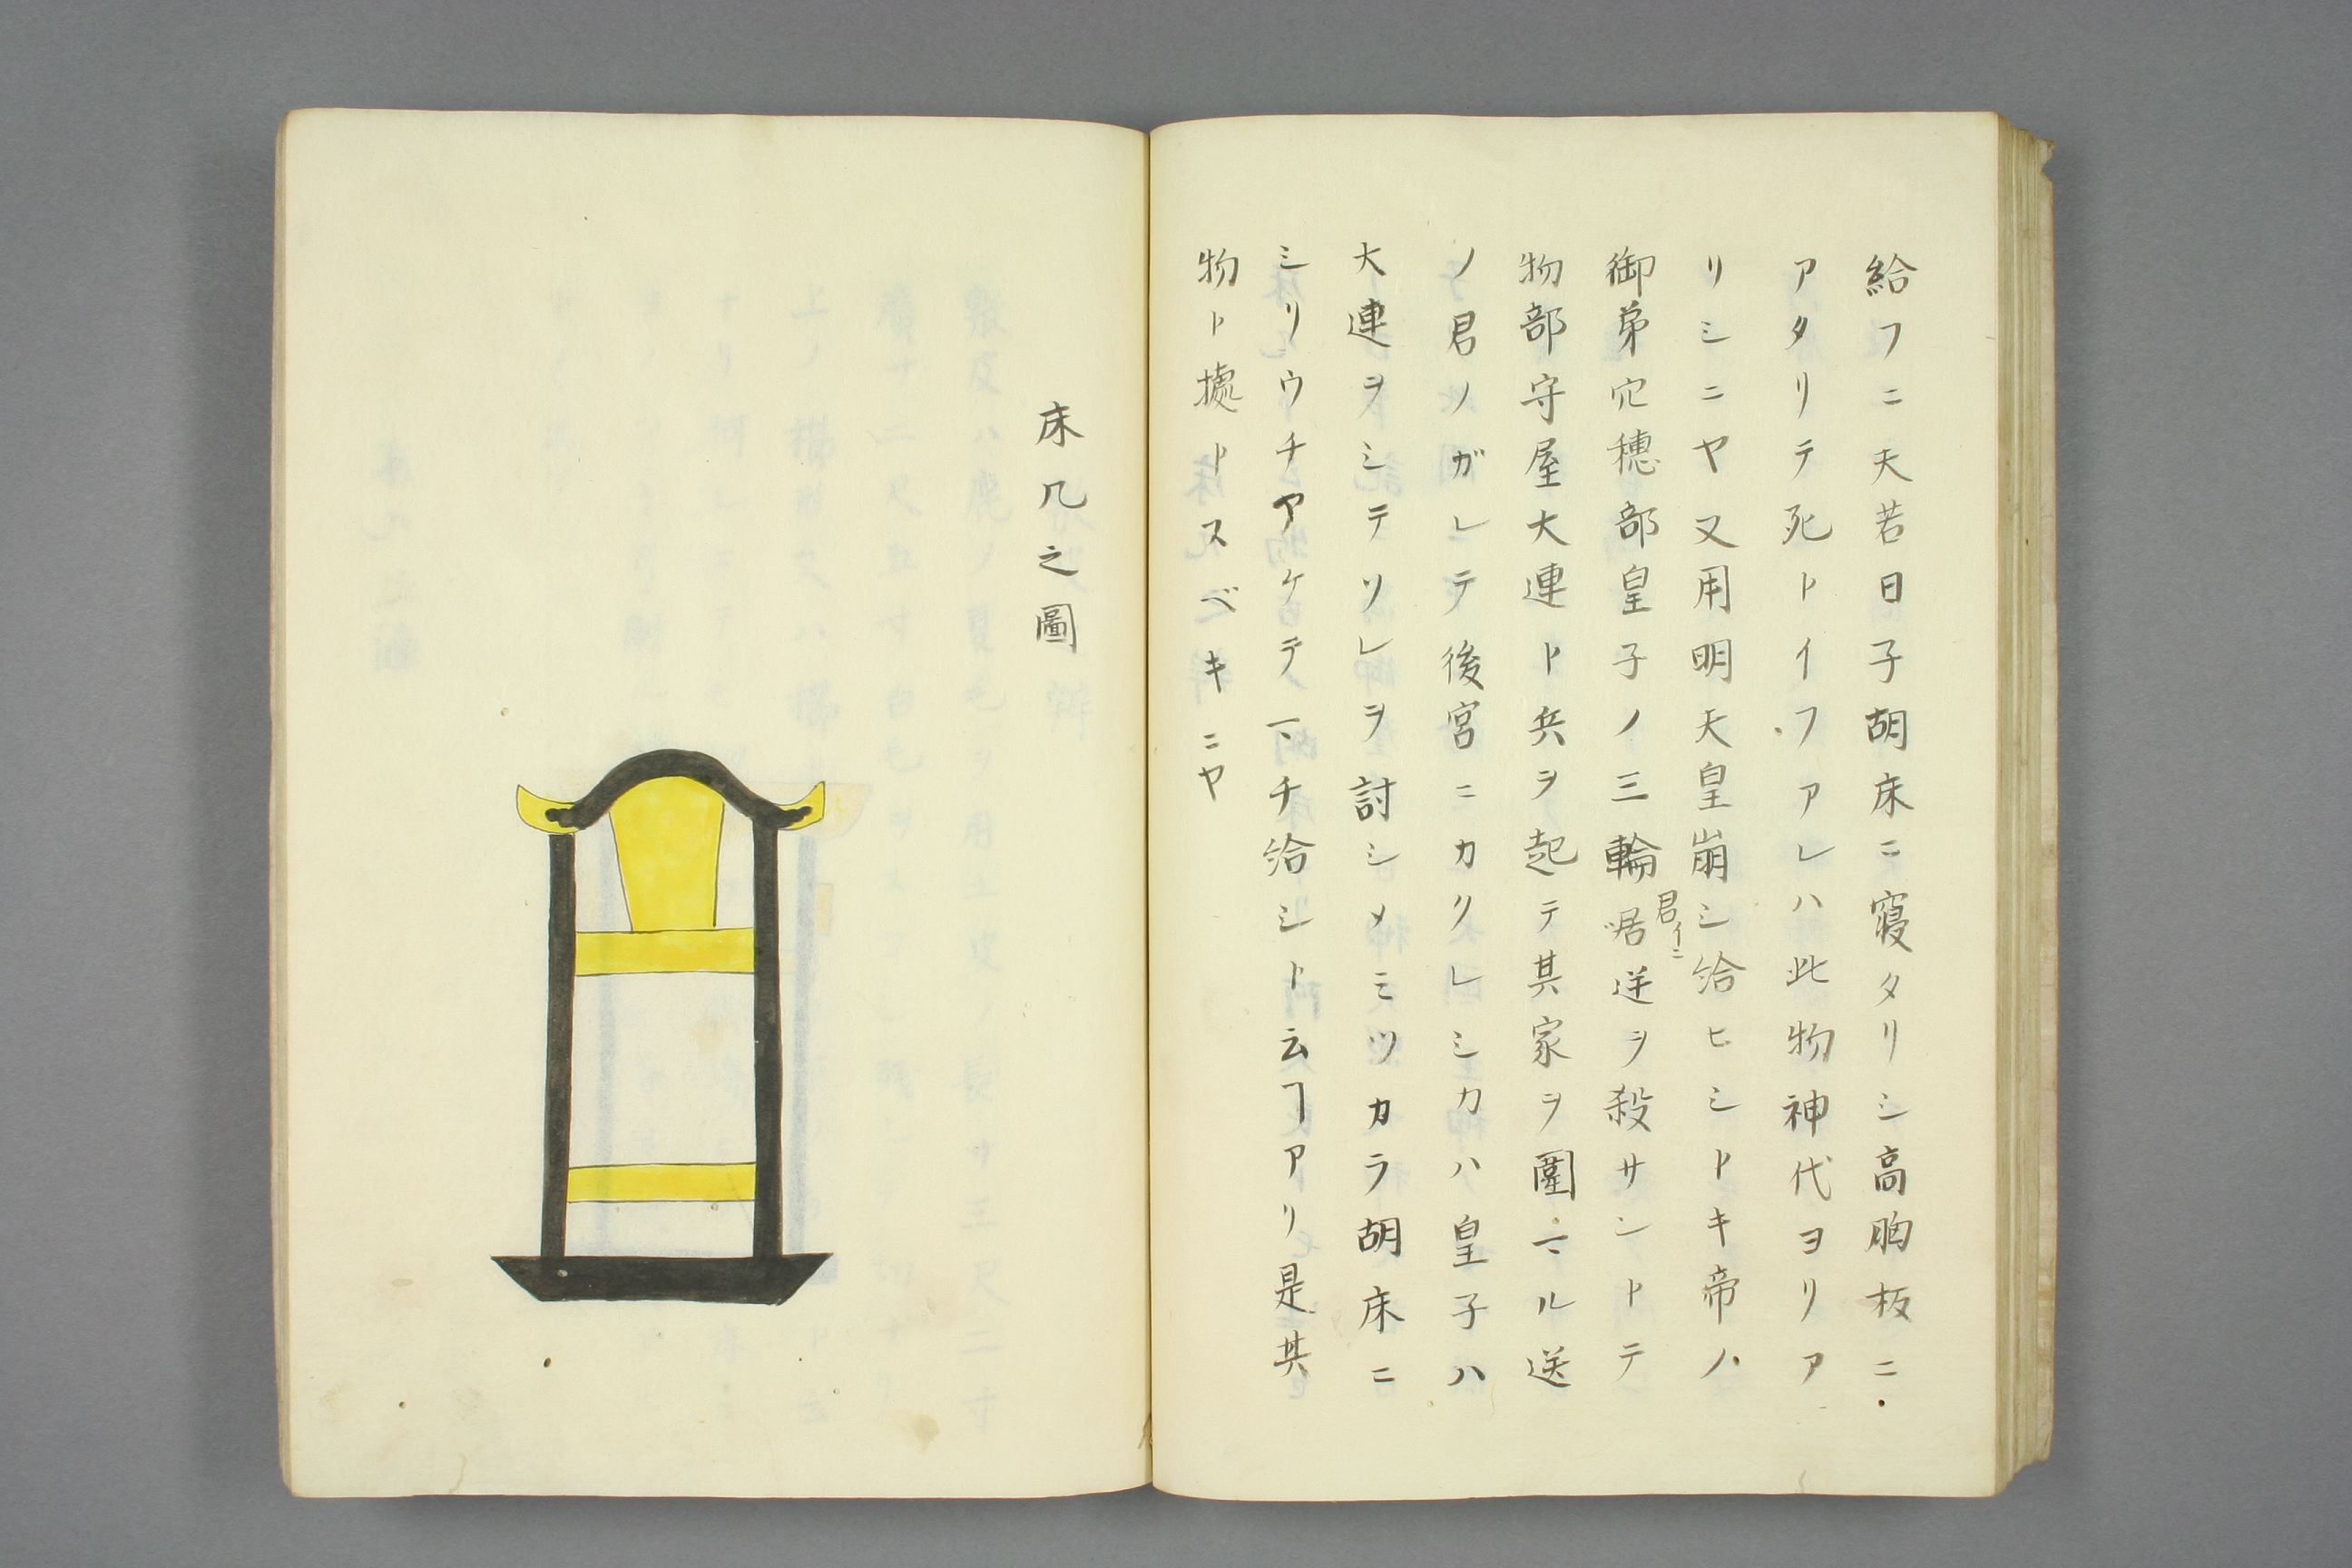 給フニ天若日子胡床ニ寝タリシ高胸板ニ
アタリテ死トイフアレハ此物神代ヨリア
リシニヤ又用明天皇崩シ給ヒシトキ帝ノ
御弟穴穂部皇子ノ三輪君逆ヲ殺サントテ
君イニ
物部守屋大連ト兵ヲ起テ其家ヲ圍マル送
ノ君ノガレテ後宮ニカクレシカハ皇子ハ
大連ヲシテソレヲ討シメミツカラ胡床ニ
シリウチアケテノマチ給シト云ヿアリ是其
物ト據トスベキニヤ
床几之圖